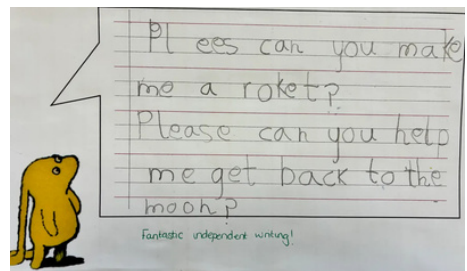 Pl ees can you make
me a roket?
Please can you help
me get back to the
moon?
Fantastic independent writing!